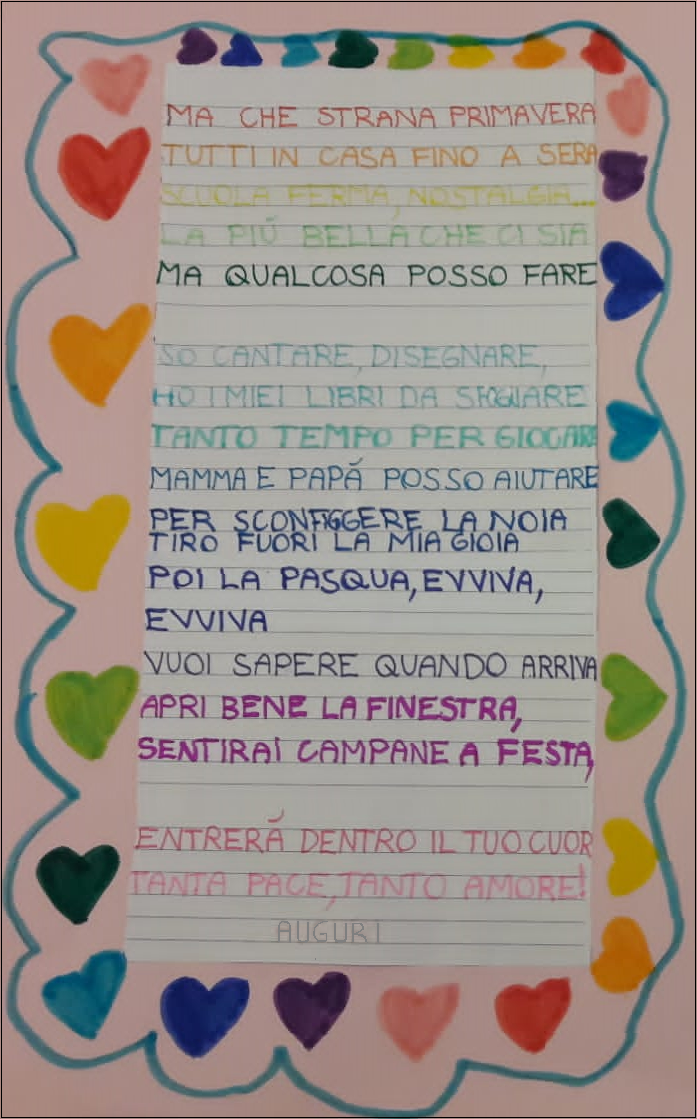 MA CHE STRANA PRIMAVERA
TUTTI IN CASA FINO A SERA
SCUOLA FERMA, NOSTALGIA...
LA PIÙ BELLA CHE CI SIA
MA QUALCOSA POSSO FARE
SO CANTARE, DISEGNARE,
HO I MIEI LIBRI DA SFOGLIARE
TANTO TEMPO PER GIOCARE
MAMMA E PAPÀ POSSO AIUTARE
PER SCONFIGGERE LA NOIA
TIRO FUORI LA MIA GIOIA
POI LA PASQUA, EVVIVA,
EVVIVA
VUOI SAPERE QUANDO ARRIVA
APRI BENE LA FINESTRA,
SENTIRAI CAMPANE A FESTA,
ENTRERÀ DENTRO IL TUO CUOR
TANTA PACE, TANTO AMORE!
AUGURI